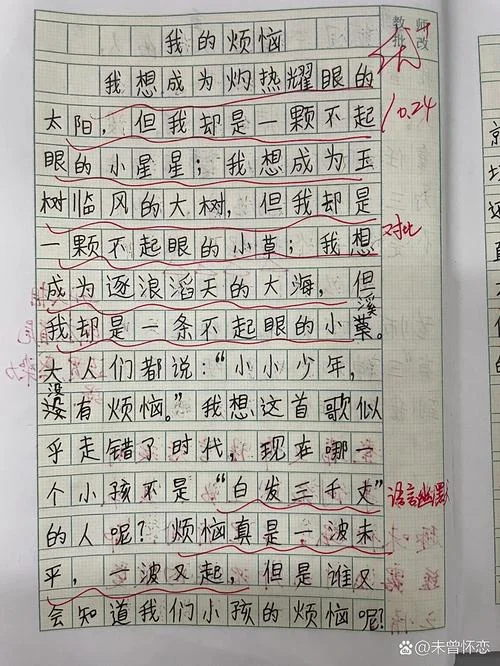 教师
批改
我的烦恼
我想成为灼热耀眼的
10.24
太阳，但我却是一颗不起
眼的小星星；我想成为玉
树临风的大树，但我却是
对比
一颗不起眼的小草；我想
成为逐浪滔天的大海，但
溪
我却是一条不起眼的小。
大人们都说：“小小少年，
没
没有烦恼。”我想这首歌似
乎走错了时代，现在哪一
个小孩不是“白发三千丈”
语言幽默
的人呢？烦恼真是一波未
平，一波又起，但是谁又
会知道我们小孩的烦恼呢？
@未曾怀恋